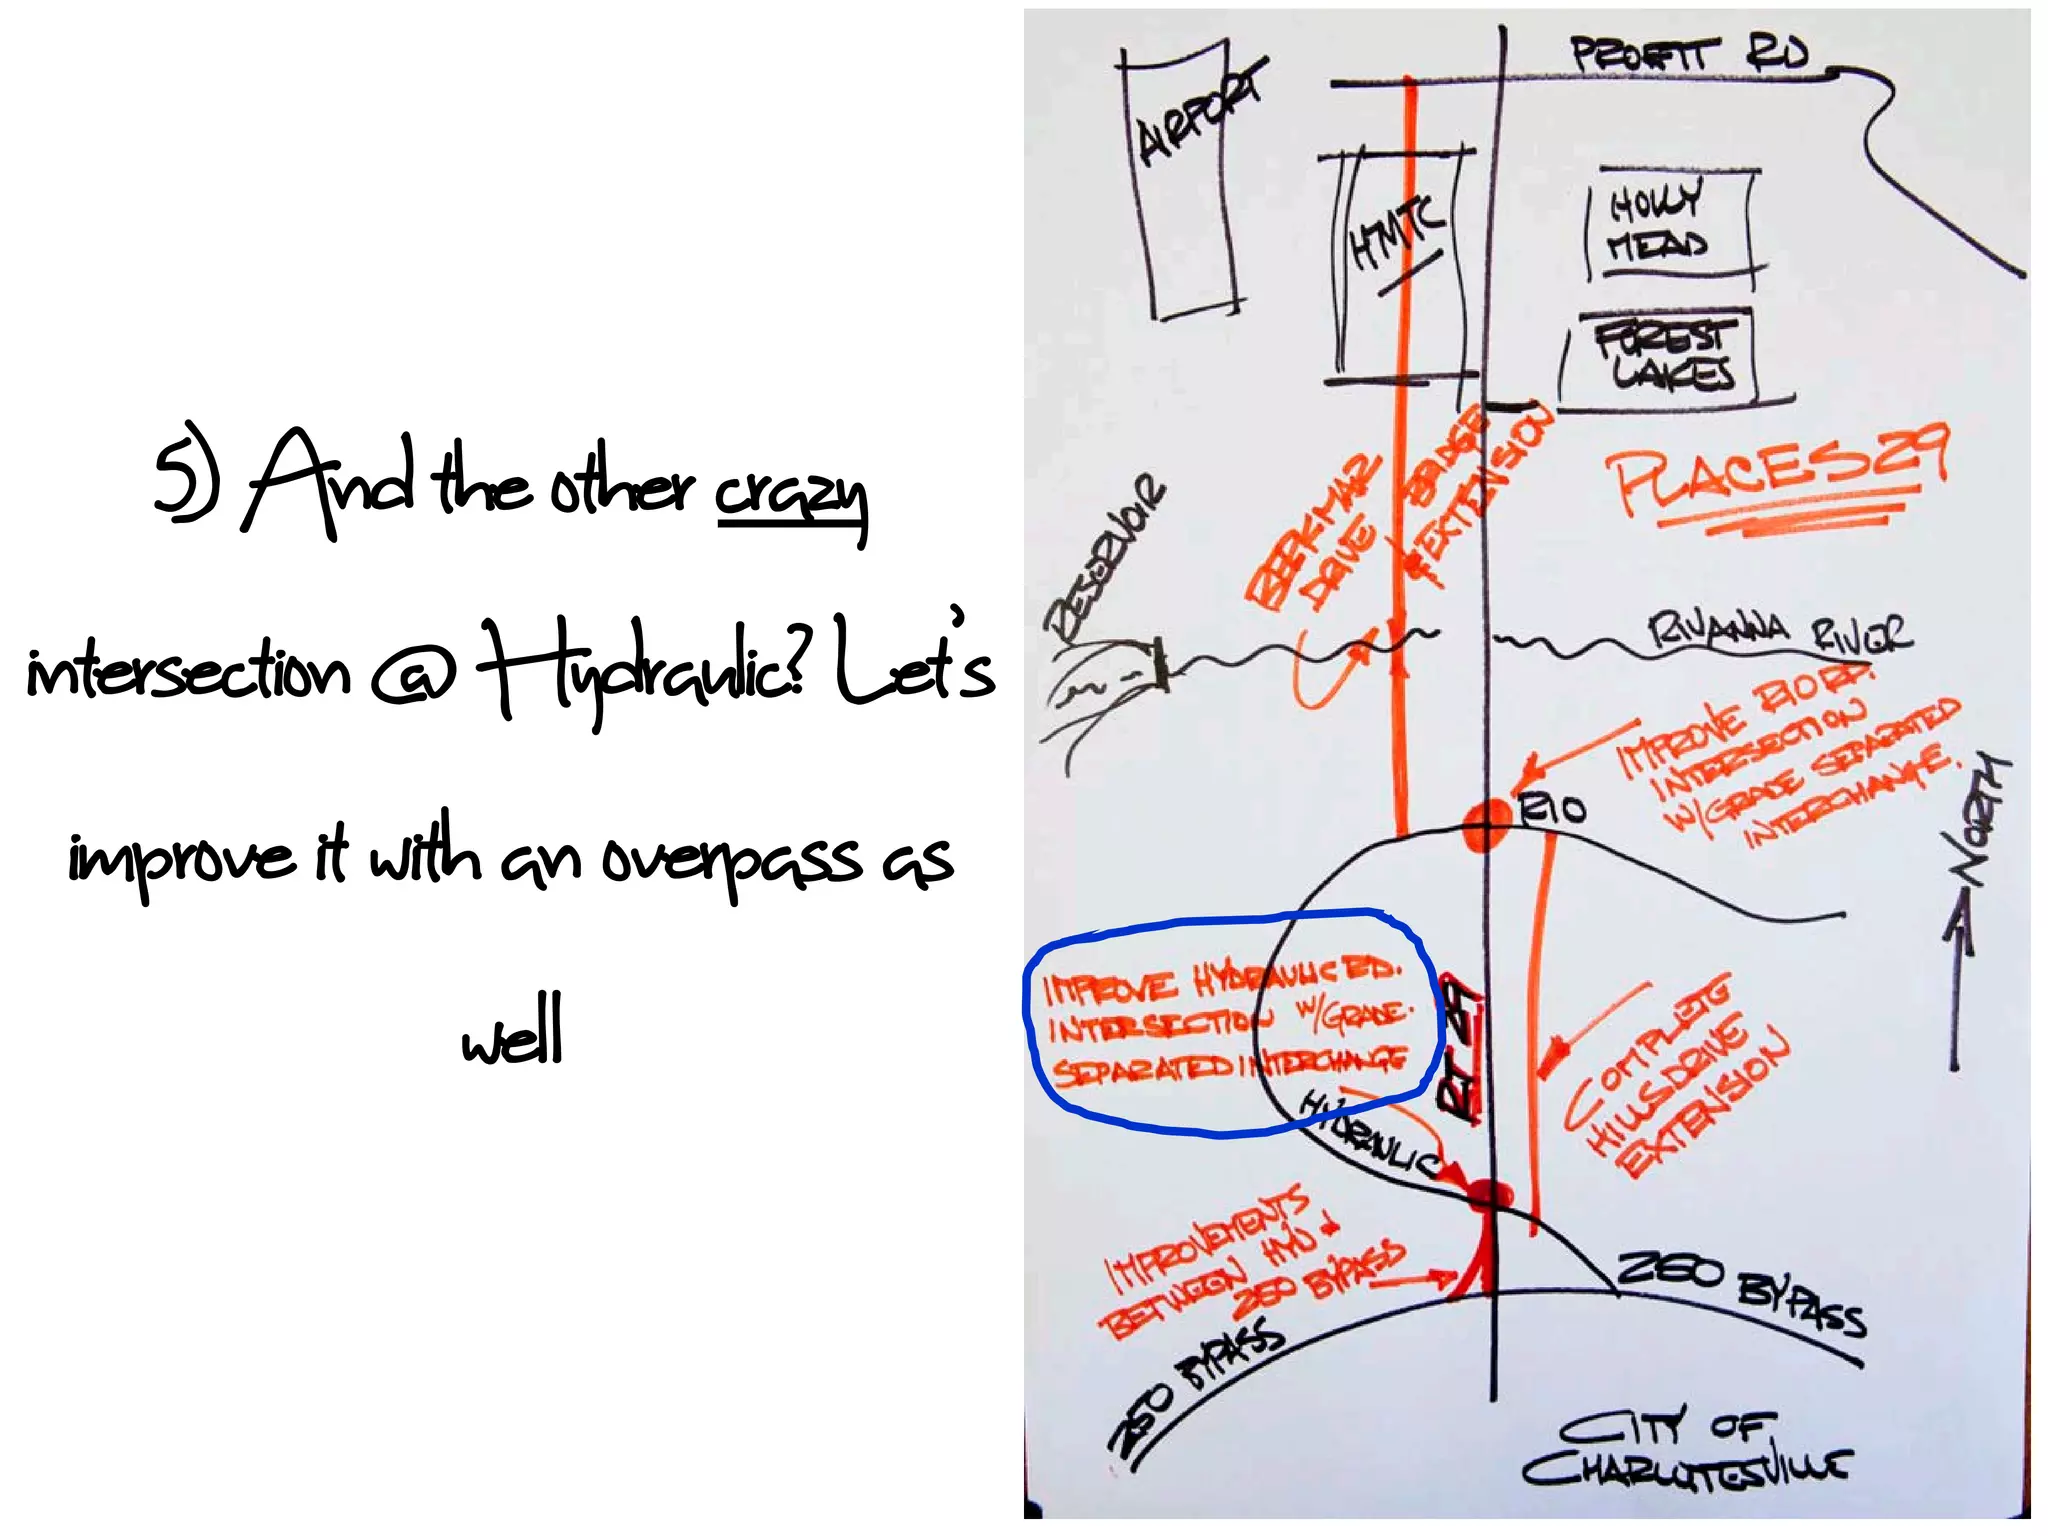 5) And the other crazy
intersection @ Hydraulic? Let's
improve it with an overpass as
well
PROFFIT RD
AIRPORT
HMTC
HOLLY
MEAD
FOREST
LAKES
PLACES29
BERKMAR
DRIVE
BRIDGE
EXTENSION
RESERVOIR
RIVANNA RIVER
IMPROVE RIO RD.
INTERSECTION
W/GRADE SEPARATED
INTERCHANGE.
RIO
NORTH
IMPROVE HYDRAULIC RD.
INTERSECTION W/GRADE.
SEPARATED INTERCHANGE
RT 29
HYDRAULIC
COMPLETE
HILLSDRIVE
EXTENSION
IMPROVEMENTS
BETWEEN HYD &
250 BYPASS
250 BYPASS
250 BYPASS
CITY OF
CHARLOTTESVILLE